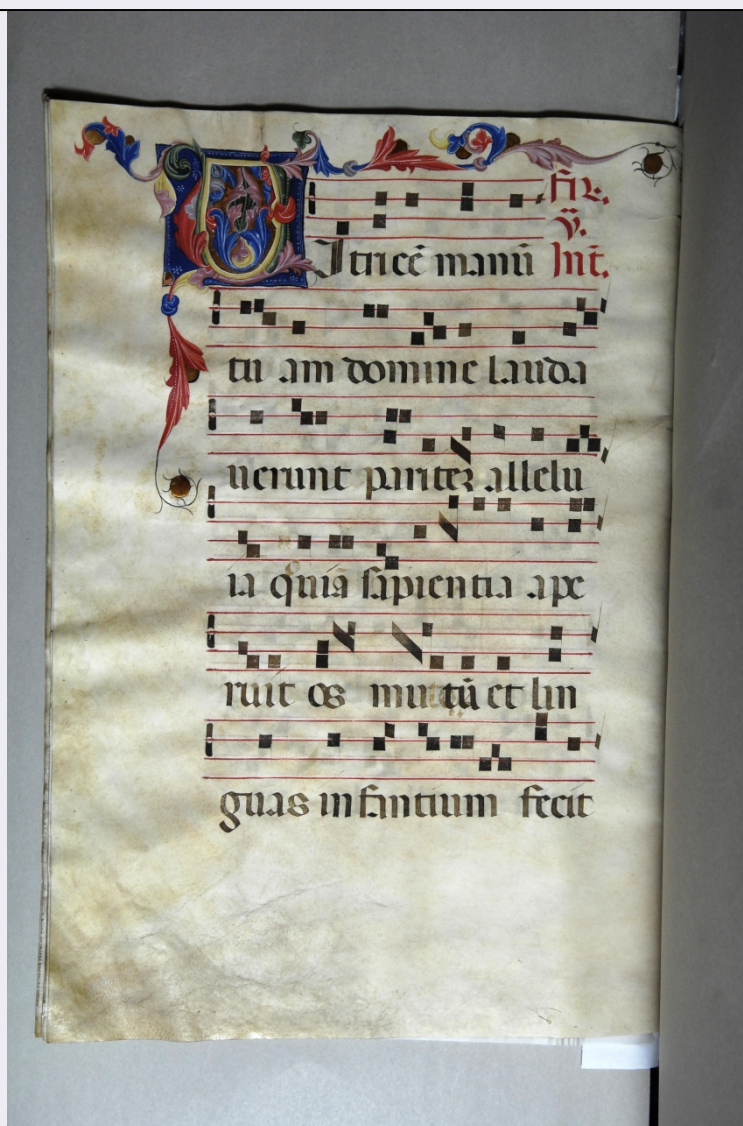 fir.
v̈.
UItricē manū Int̄.
tu am domine lauda
uerunt pariter allelu
ia quia sapientia ape
ruit os mutū et lin
guas infantium fecit